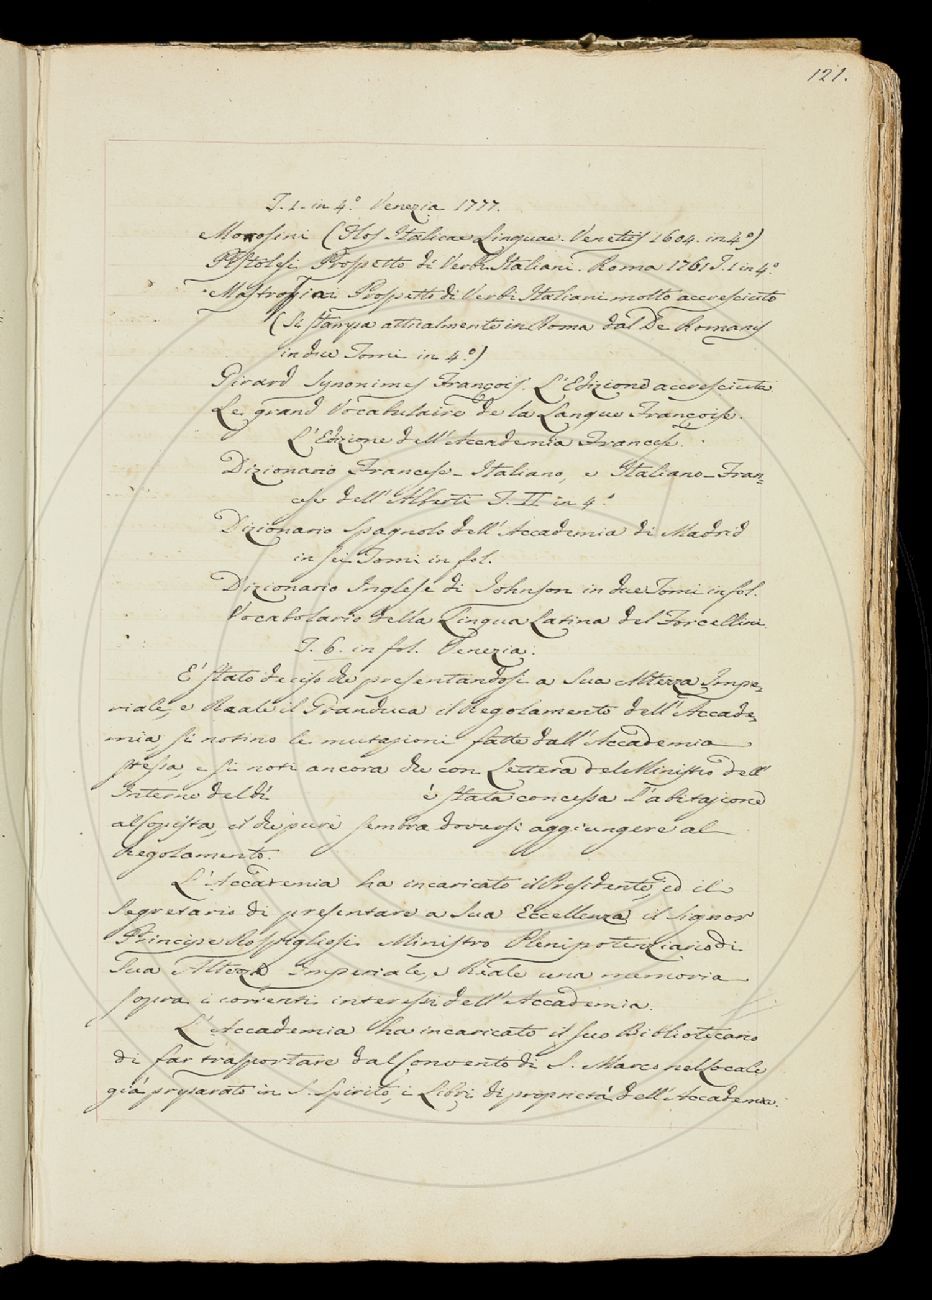 121.
T. 1. in 4.° Venezia 1777.
Monosini (Flos Italicae Linguae. Venetiis 1604. in 4.°)
Pistolesi Prospetto di Verbi Italiani. Roma 1761 T. 1 in 4.°
Mastrofini Prospetto di Verbi Italiani molto accresciuto
(Si stampa attualmente in Roma dal De Romanis
in due Tomi in 4.°)
Girard Synonimes François. L'Edizione accresciuta
Le grand Vocabulaire de la Langue Françoise.
L'Edizione dell'Accademia Francese.
Dizionario Francese-Italiano, e Italiano-Fran=
cese dell'Alberti T. II in 4.°
Dizionario Spagnolo dell'Accademia di Madrid
in sei Tomi in fol.
Dizionario Inglese di Johnson in due Tomi in fol.
Vocabolario della Lingua Latina del Forcellini
T. 6. in fol. Venezia.
E' stato deciso che presentandosi a Sua Altezza Impe=
riale, e Reale il Granduca il Regolamento dell'Accade=
mia, si notino le mutazioni fatte dall'Accademia
stessa, e si noti ancora che con Lettera del Ministro dell'
Interno del dì è stata concessa l'abitazione
al Copista, il che pure sembra doversi aggiungere al
Regolamento.
L'Accademia ha incaricato il Presidente, ed il
Segretario di presentare a Sua Eccellenza il Signor
Principe Rospigliosi Ministro Plenipotenziario di
Sua Altezza Imperiale, e Reale una memoria
sopra i correnti interessi dell'Accademia.
L'Accademia ha incaricato il suo Bibliotecario
di far trasportare dal Convento di S. Marco nel Locale
già preparato in S. Spirito, i Libri di proprietà dell'Accademia.